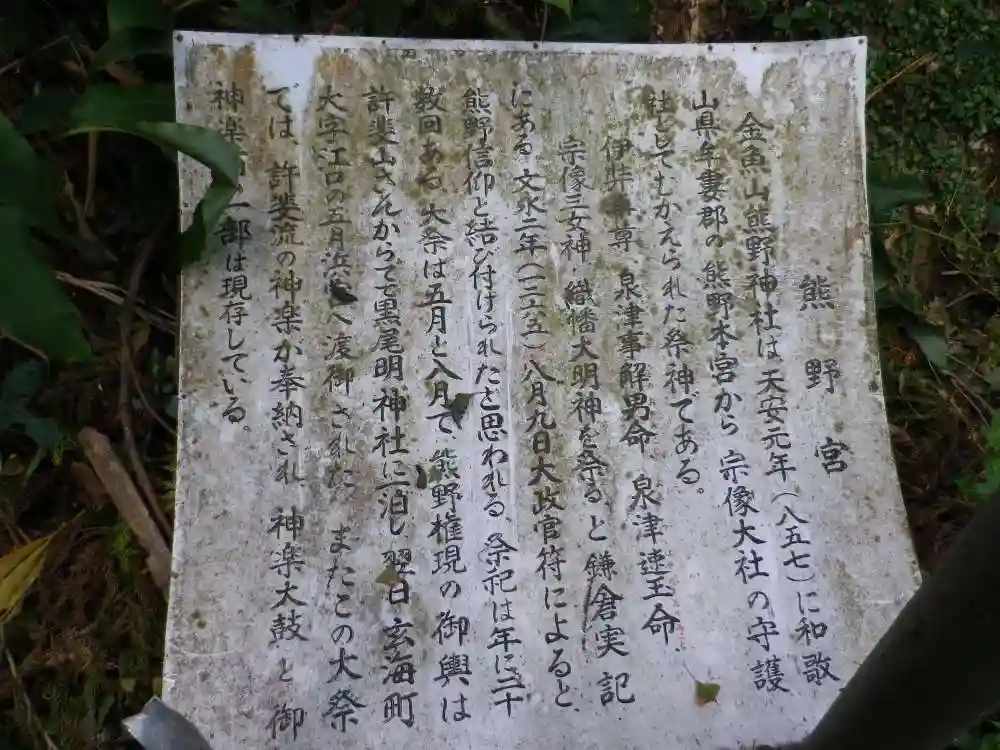 熊野宮
金魚山熊野神社は天安元年(八五七)に和歌
山県牟婁郡の熊野本宮から宗像大社の守護
社としてむかえられた祭神である。
伊弉 尊 泉津事解男命 泉津速玉命
宗像三女神、織幡大明神を祭ると鎌倉実記
にある 文永二年(一二六五)八月九日大政官符によると、
熊野信仰と結び付けられたと思われる、祭祀は年に二十
数回ある。大祭は五月と八月で、熊野権現の御輿は
許斐山さんからでて黒尾明神社に一泊し 翌日 玄海町
大字江口の五月浜 へ渡御された またこの大祭
では、許斐流の神楽が奉納され 神楽太鼓と御
神楽 の一部は現存している。